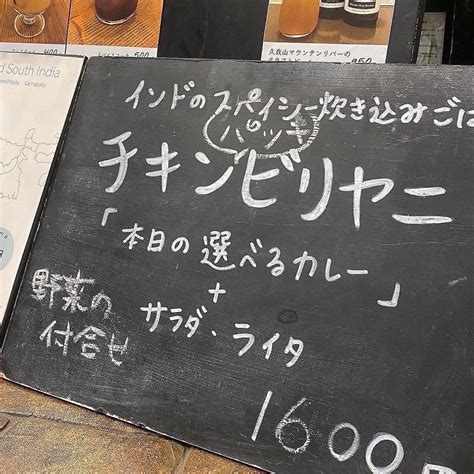 400
500
久我山マウンテンリバーの
950
d South India
Karnataka
インドのスペイシー炊き込みごは
パッキ
チキンビリヤニ
「本日の選べるカレー」
+
サラダ・ライタ
野菜の
付合せ
1600円